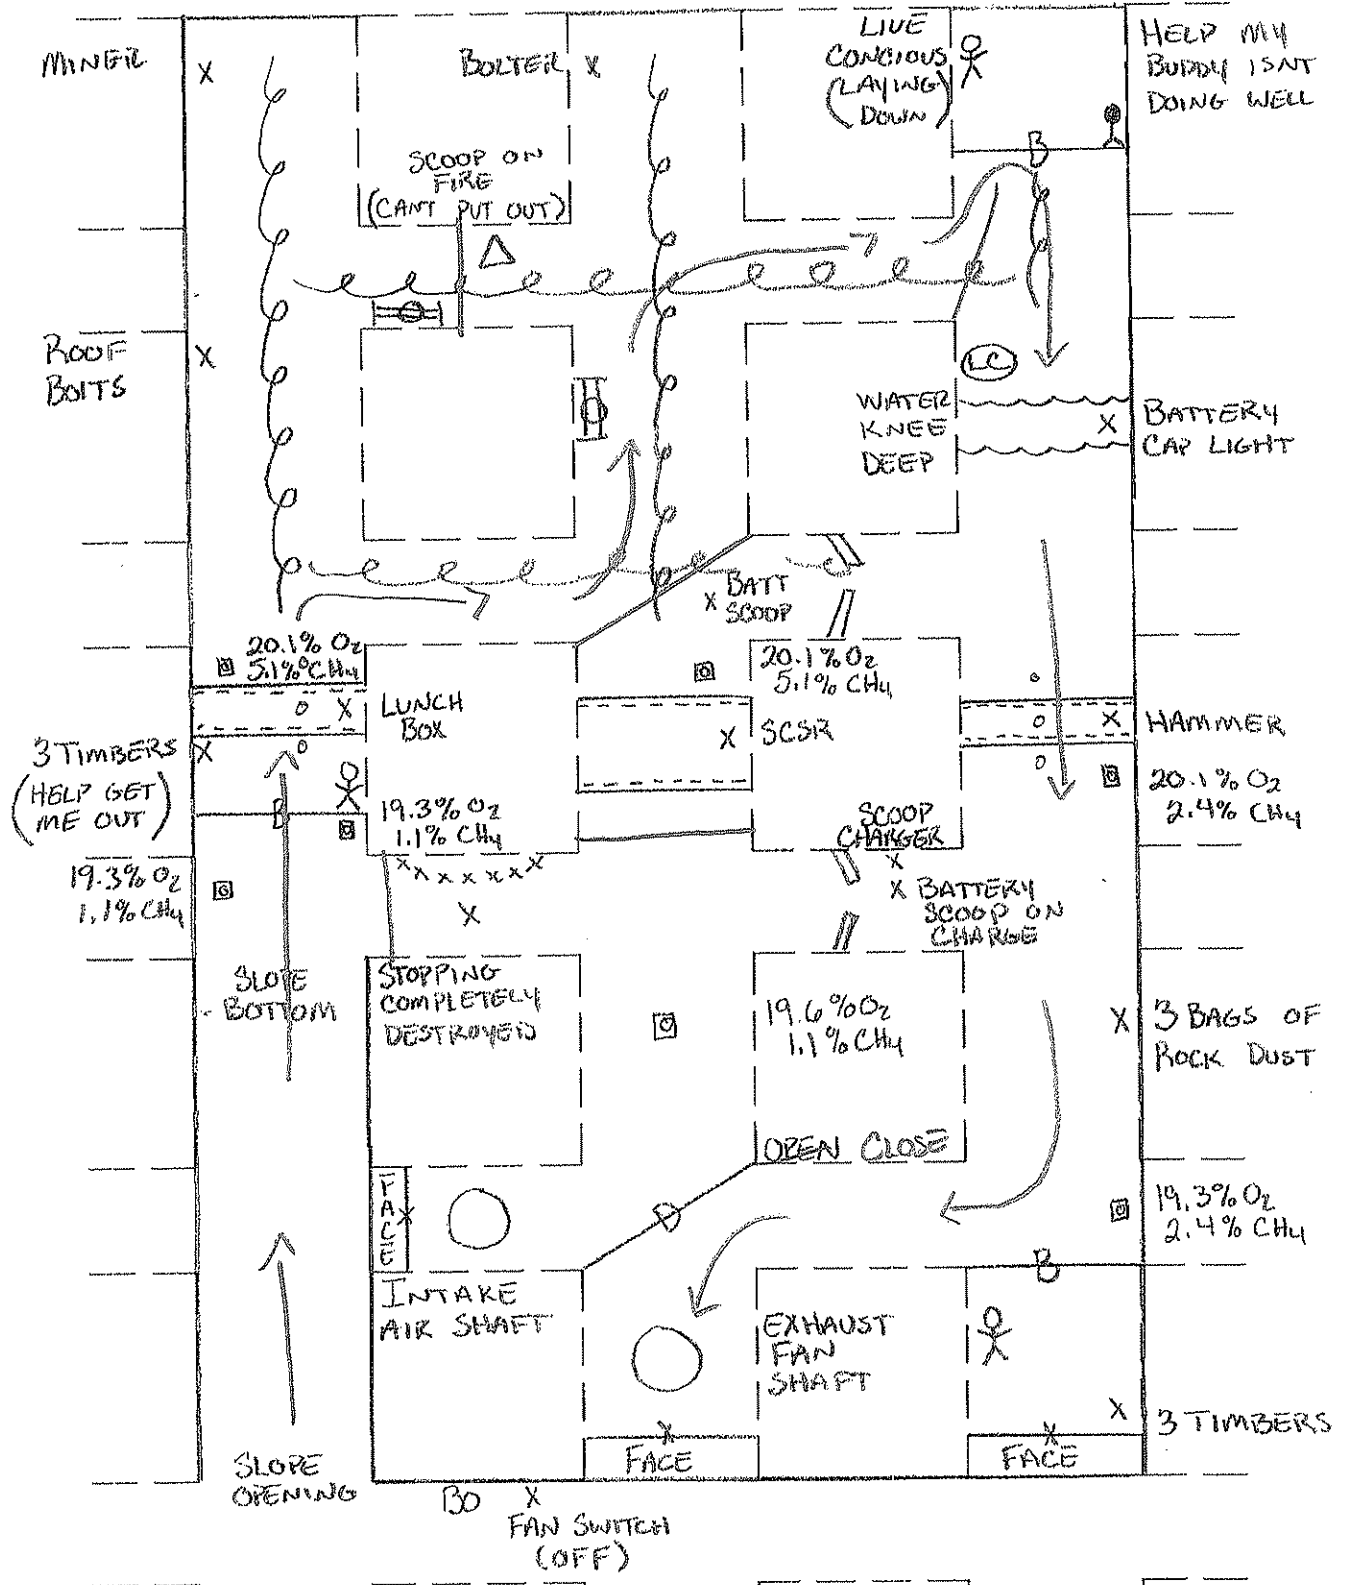 MINER
BOLTER
LIVE
CONCIOUS
(LAYING
DOWN)
HELP MY
BUDDY ISNT
DOING WELL
B
SCOOP ON
FIRE
(CANT PUT OUT)
ROOF
BOLTS
LC
WATER
KNEE
DEEP
BATTERY
CAP LIGHT
BATT
SCOOP
20.1% O2
5.1% CH4
20.1% O2
5.1% CH4
LUNCH
BOX
SCSR
HAMMER
3 TIMBERS
(HELP GET
ME OUT)
B
19.3% O2
1.1% CH4
SCOOP
CHARGER
20.1% O2
2.4% CH4
19.3% O2
1.1% CH4
BATTERY
SCOOP ON
CHARGE
SLOPE
BOTTOM
STOPPING
COMPLETELY
DESTROYED
19.6% O2
1.1% CH4
3 BAGS OF
ROCK DUST
OPEN CLOSE
FACE
D
19.3% O2
2.4% CH4
B
INTAKE
AIR SHAFT
EXHAUST
FAN
SHAFT
3 TIMBERS
FACE
FACE
SLOPE
OPENING
BO
FAN SWITCH
(OFF)